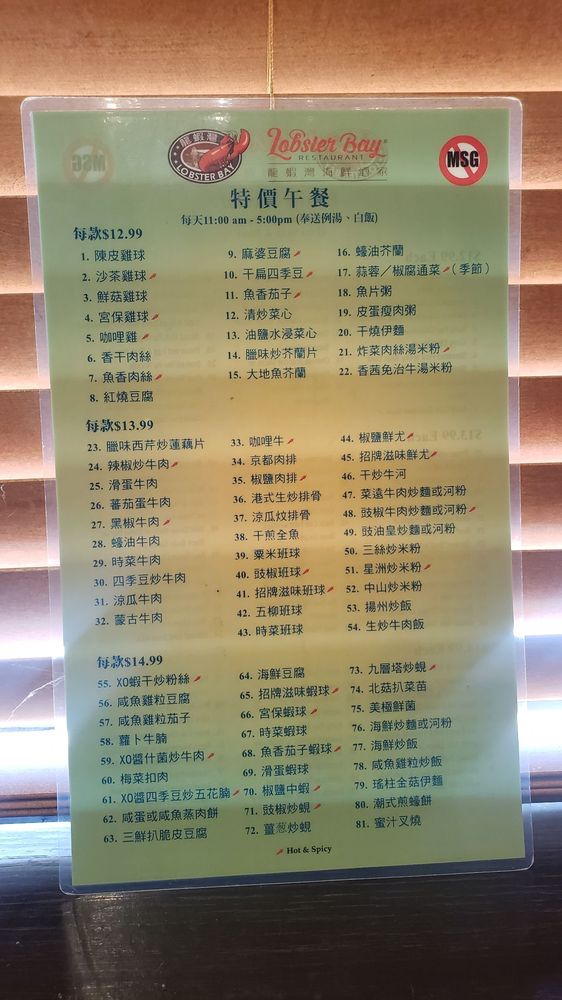 龍蝦灣
LOBSTER BAY
Lobster Bay
RESTAURANT
龍蝦灣海鮮酒家
MSG
特價午餐
每天11:00 am - 5:00pm (奉送例湯、白飯)
每款$12.99
1. 陳皮雞球
2. 沙茶雞球
3. 鮮菇雞球
4. 宮保雞球
5. 咖哩雞
6. 香干肉絲
7. 魚香肉絲
8. 紅燒豆腐
9. 麻婆豆腐
10. 干扁四季豆
11. 魚香茄子
12. 清炒菜心
13. 油鹽水浸菜心
14. 臘味炒芥蘭片
15. 大地魚芥蘭
16. 蠔油芥蘭
17. 蒜蓉／椒腐通菜（季節）
18. 魚片粥
19. 皮蛋瘦肉粥
20. 干燒伊麵
21. 炸菜肉絲湯米粉
22. 香茜免治牛湯米粉
每款$13.99
23. 臘味西芹炒蓮藕片
24. 辣椒炒牛肉
25. 滑蛋牛肉
26. 蕃茄蛋牛肉
27. 黑椒牛肉
28. 蠔油牛肉
29. 時菜牛肉
30. 四季豆炒牛肉
31. 涼瓜牛肉
32. 蒙古牛肉
33. 咖哩牛
34. 京都肉排
35. 椒鹽肉排
36. 港式生炒排骨
37. 涼瓜炆排骨
38. 干煎全魚
39. 粟米班球
40. 豉椒班球
41. 招牌滋味班球
42. 五柳班球
43. 時菜班球
44. 椒鹽鮮尤
45. 招牌滋味鮮尤
46. 干炒牛河
47. 菜遠牛肉炒麵或河粉
48. 豉椒牛肉炒麵或河粉
49. 豉油皇炒麵或河粉
50. 三絲炒米粉
51. 星洲炒米粉
52. 中山炒米粉
53. 揚州炒飯
54. 生炒牛肉飯
每款$14.99
55. XO蝦干炒粉絲
56. 咸魚雞粒豆腐
57. 咸魚雞粒茄子
58. 蘿卜牛腩
59. XO醬什菌炒牛肉
60. 梅菜扣肉
61. XO醬四季豆炒五花腩
62. 咸蛋或咸魚蒸肉餅
63. 三鮮扒脆皮豆腐
64. 海鮮豆腐
65. 招牌滋味蝦球
66. 宮保蝦球
67. 時菜蝦球
68. 魚香茄子蝦球
69. 滑蛋蝦球
70. 椒鹽中蝦
71. 豉椒炒蜆
72. 薑葱炒蜆
73. 九層塔炒蜆
74. 北菇扒菜苗
75. 美極鮮菌
76. 海鮮炒麵或河粉
77. 海鮮炒飯
78. 咸魚雞粒炒飯
79. 瑤柱金菇伊麵
80. 潮式煎蠔餅
81. 蜜汁叉燒
Hot & Spicy